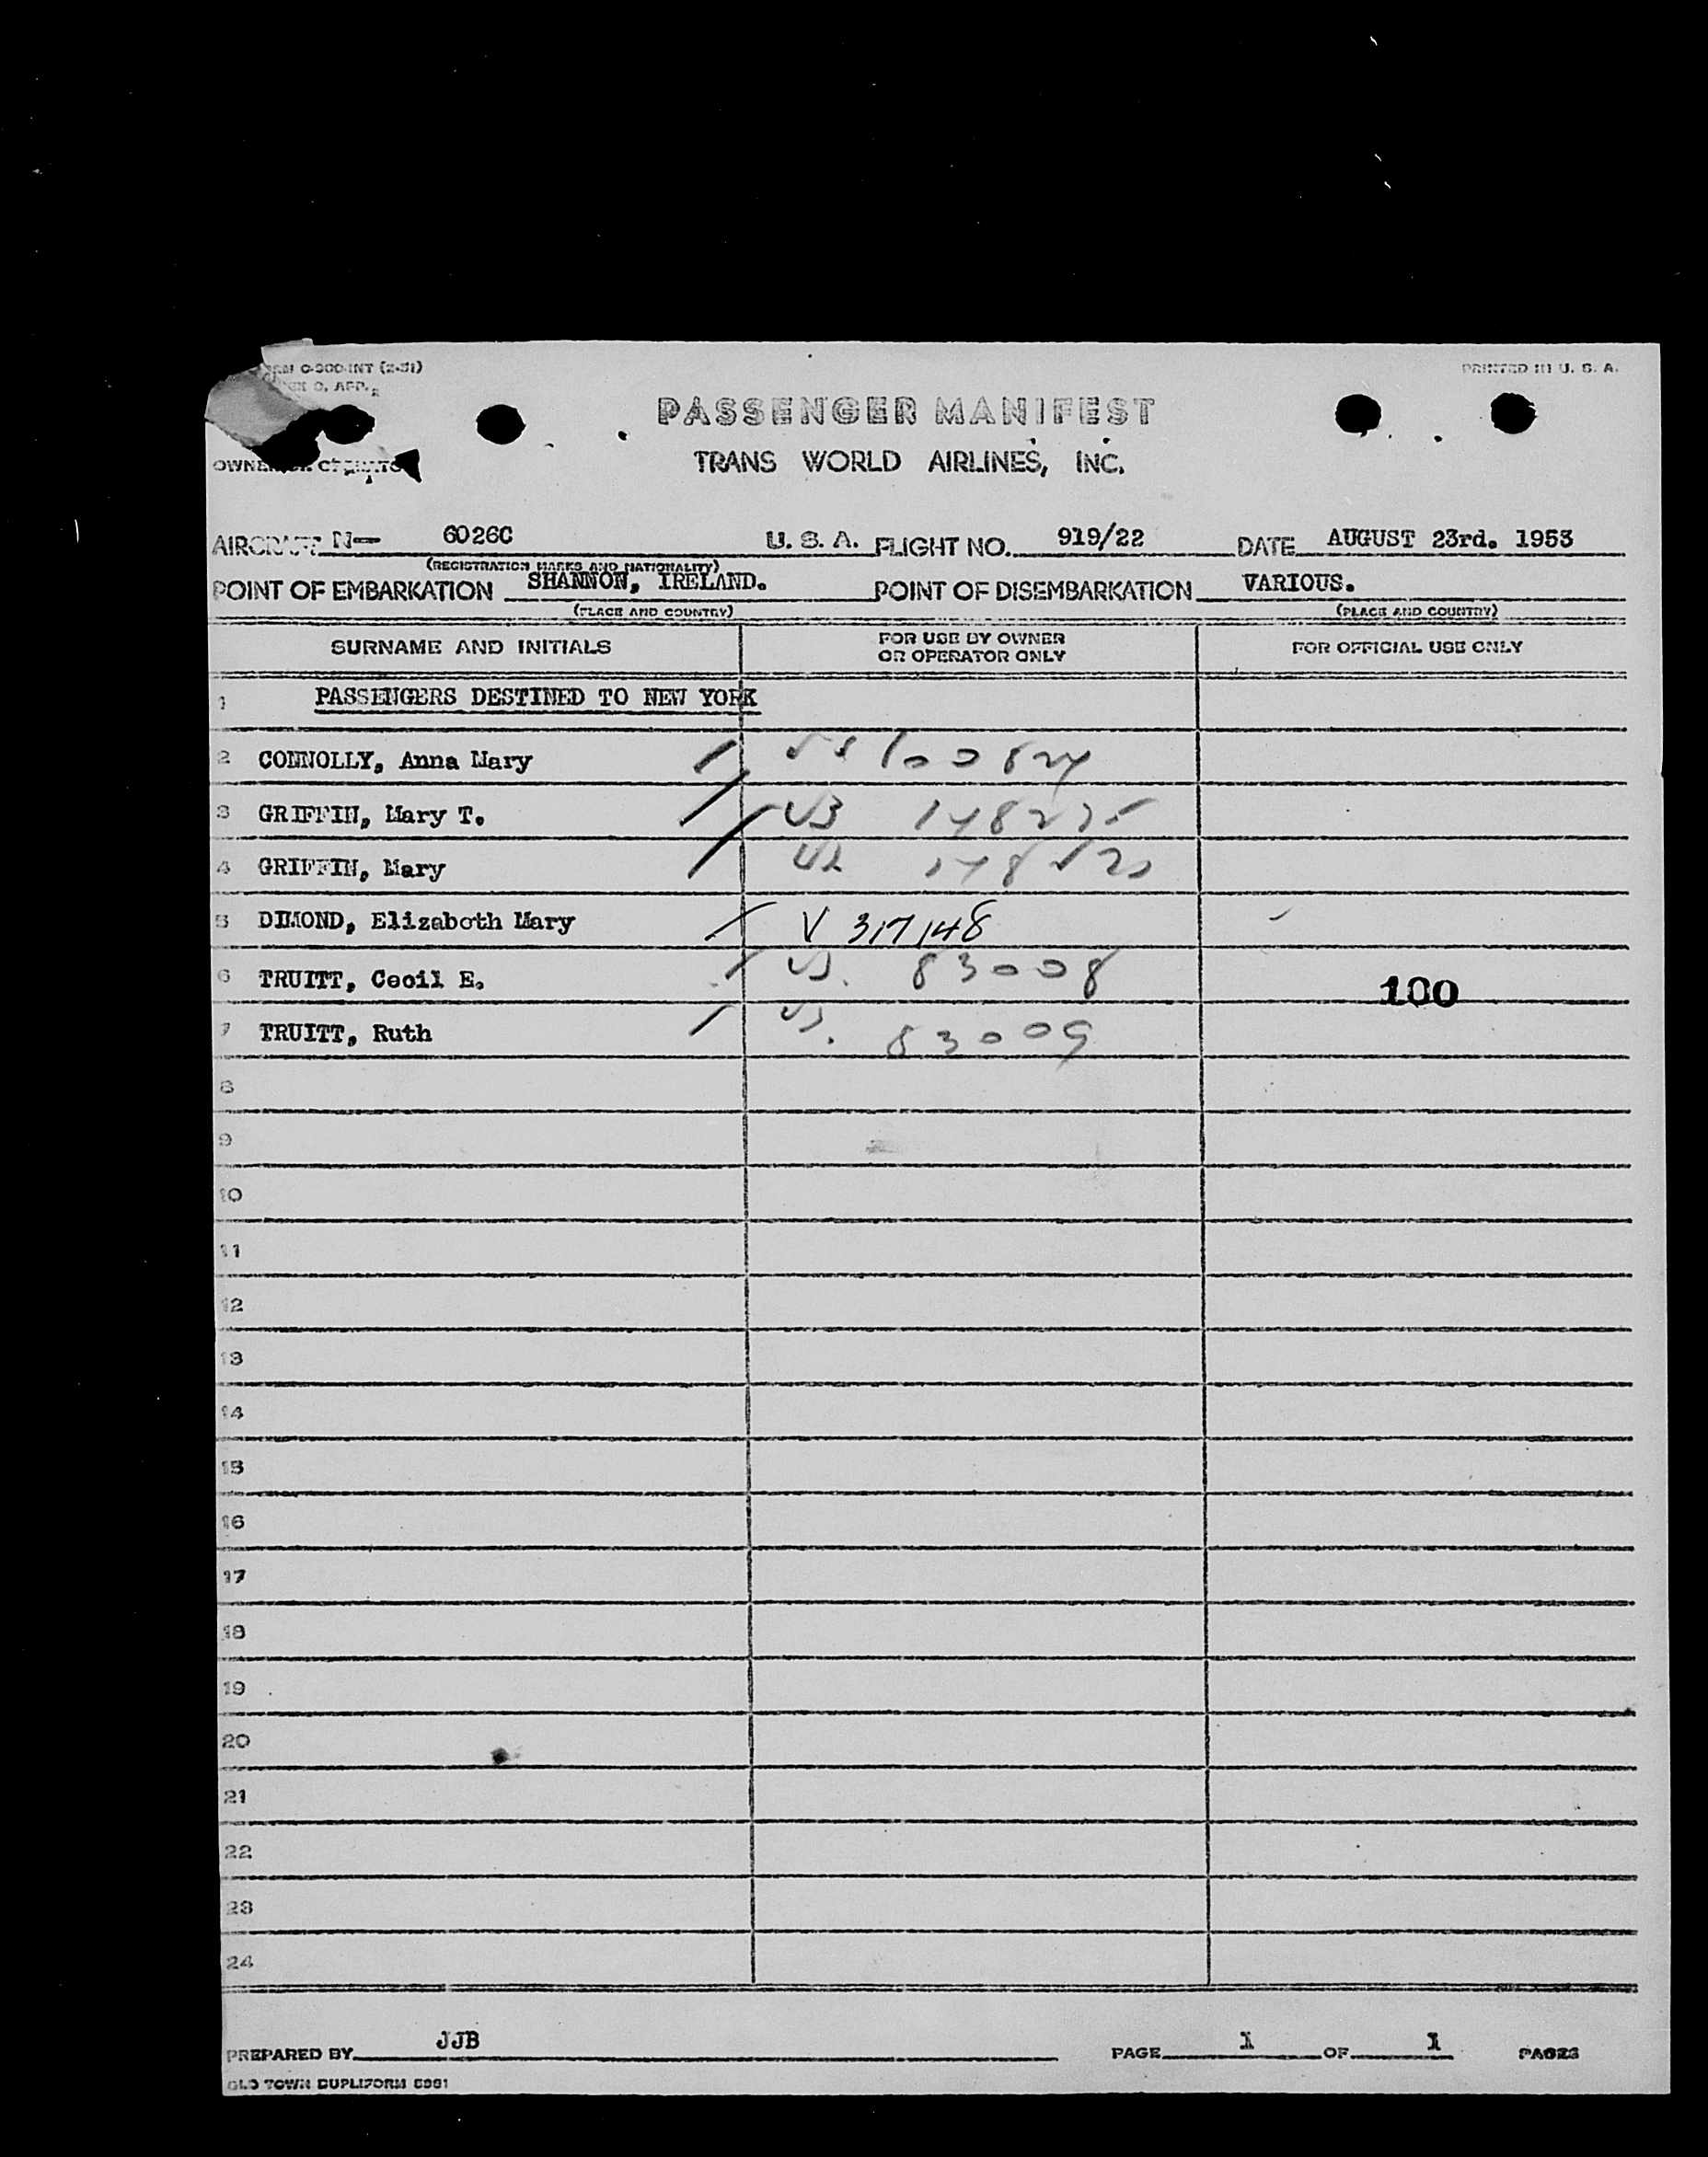 C-300-INT (2-51)
PRINTED IN U. S. A.
PASSENGER MANIFEST
TRANS WORLD AIRLINES, INC.
OWNER OR OPERATOR
AIRCRAFT N— 6026C U. S. A. FLIGHT NO. 919/22 DATE AUGUST 23rd. 1953
(REGISTRATION MARKS AND NATIONALITY)
POINT OF EMBARKATION SHANNON, IRELAND. POINT OF DISEMBARKATION VARIOUS.
(PLACE AND COUNTRY) (PLACE AND COUNTRY)
SURNAME AND INITIALS FOR USE BY OWNER OR OPERATOR ONLY FOR OFFICIAL USE ONLY
1 PASSENGERS DESTINED TO NEW YORK
2 CONNOLLY, Anna Mary
3 GRIFFIN, Mary T. US
4 GRIFFIN, Mary US
5 DIMOND, Elizabeth Mary V 317148
6 TRUITT, Cecil E. US. 83008 100
7 TRUITT, Ruth US. 83009
8
9
10
11
12
13
14
15
16
17
18
19
20
21
22
23
24
PREPARED BY JJB PAGE 1 OF 1 PAGES
OLD TOWN DUPLIFORM